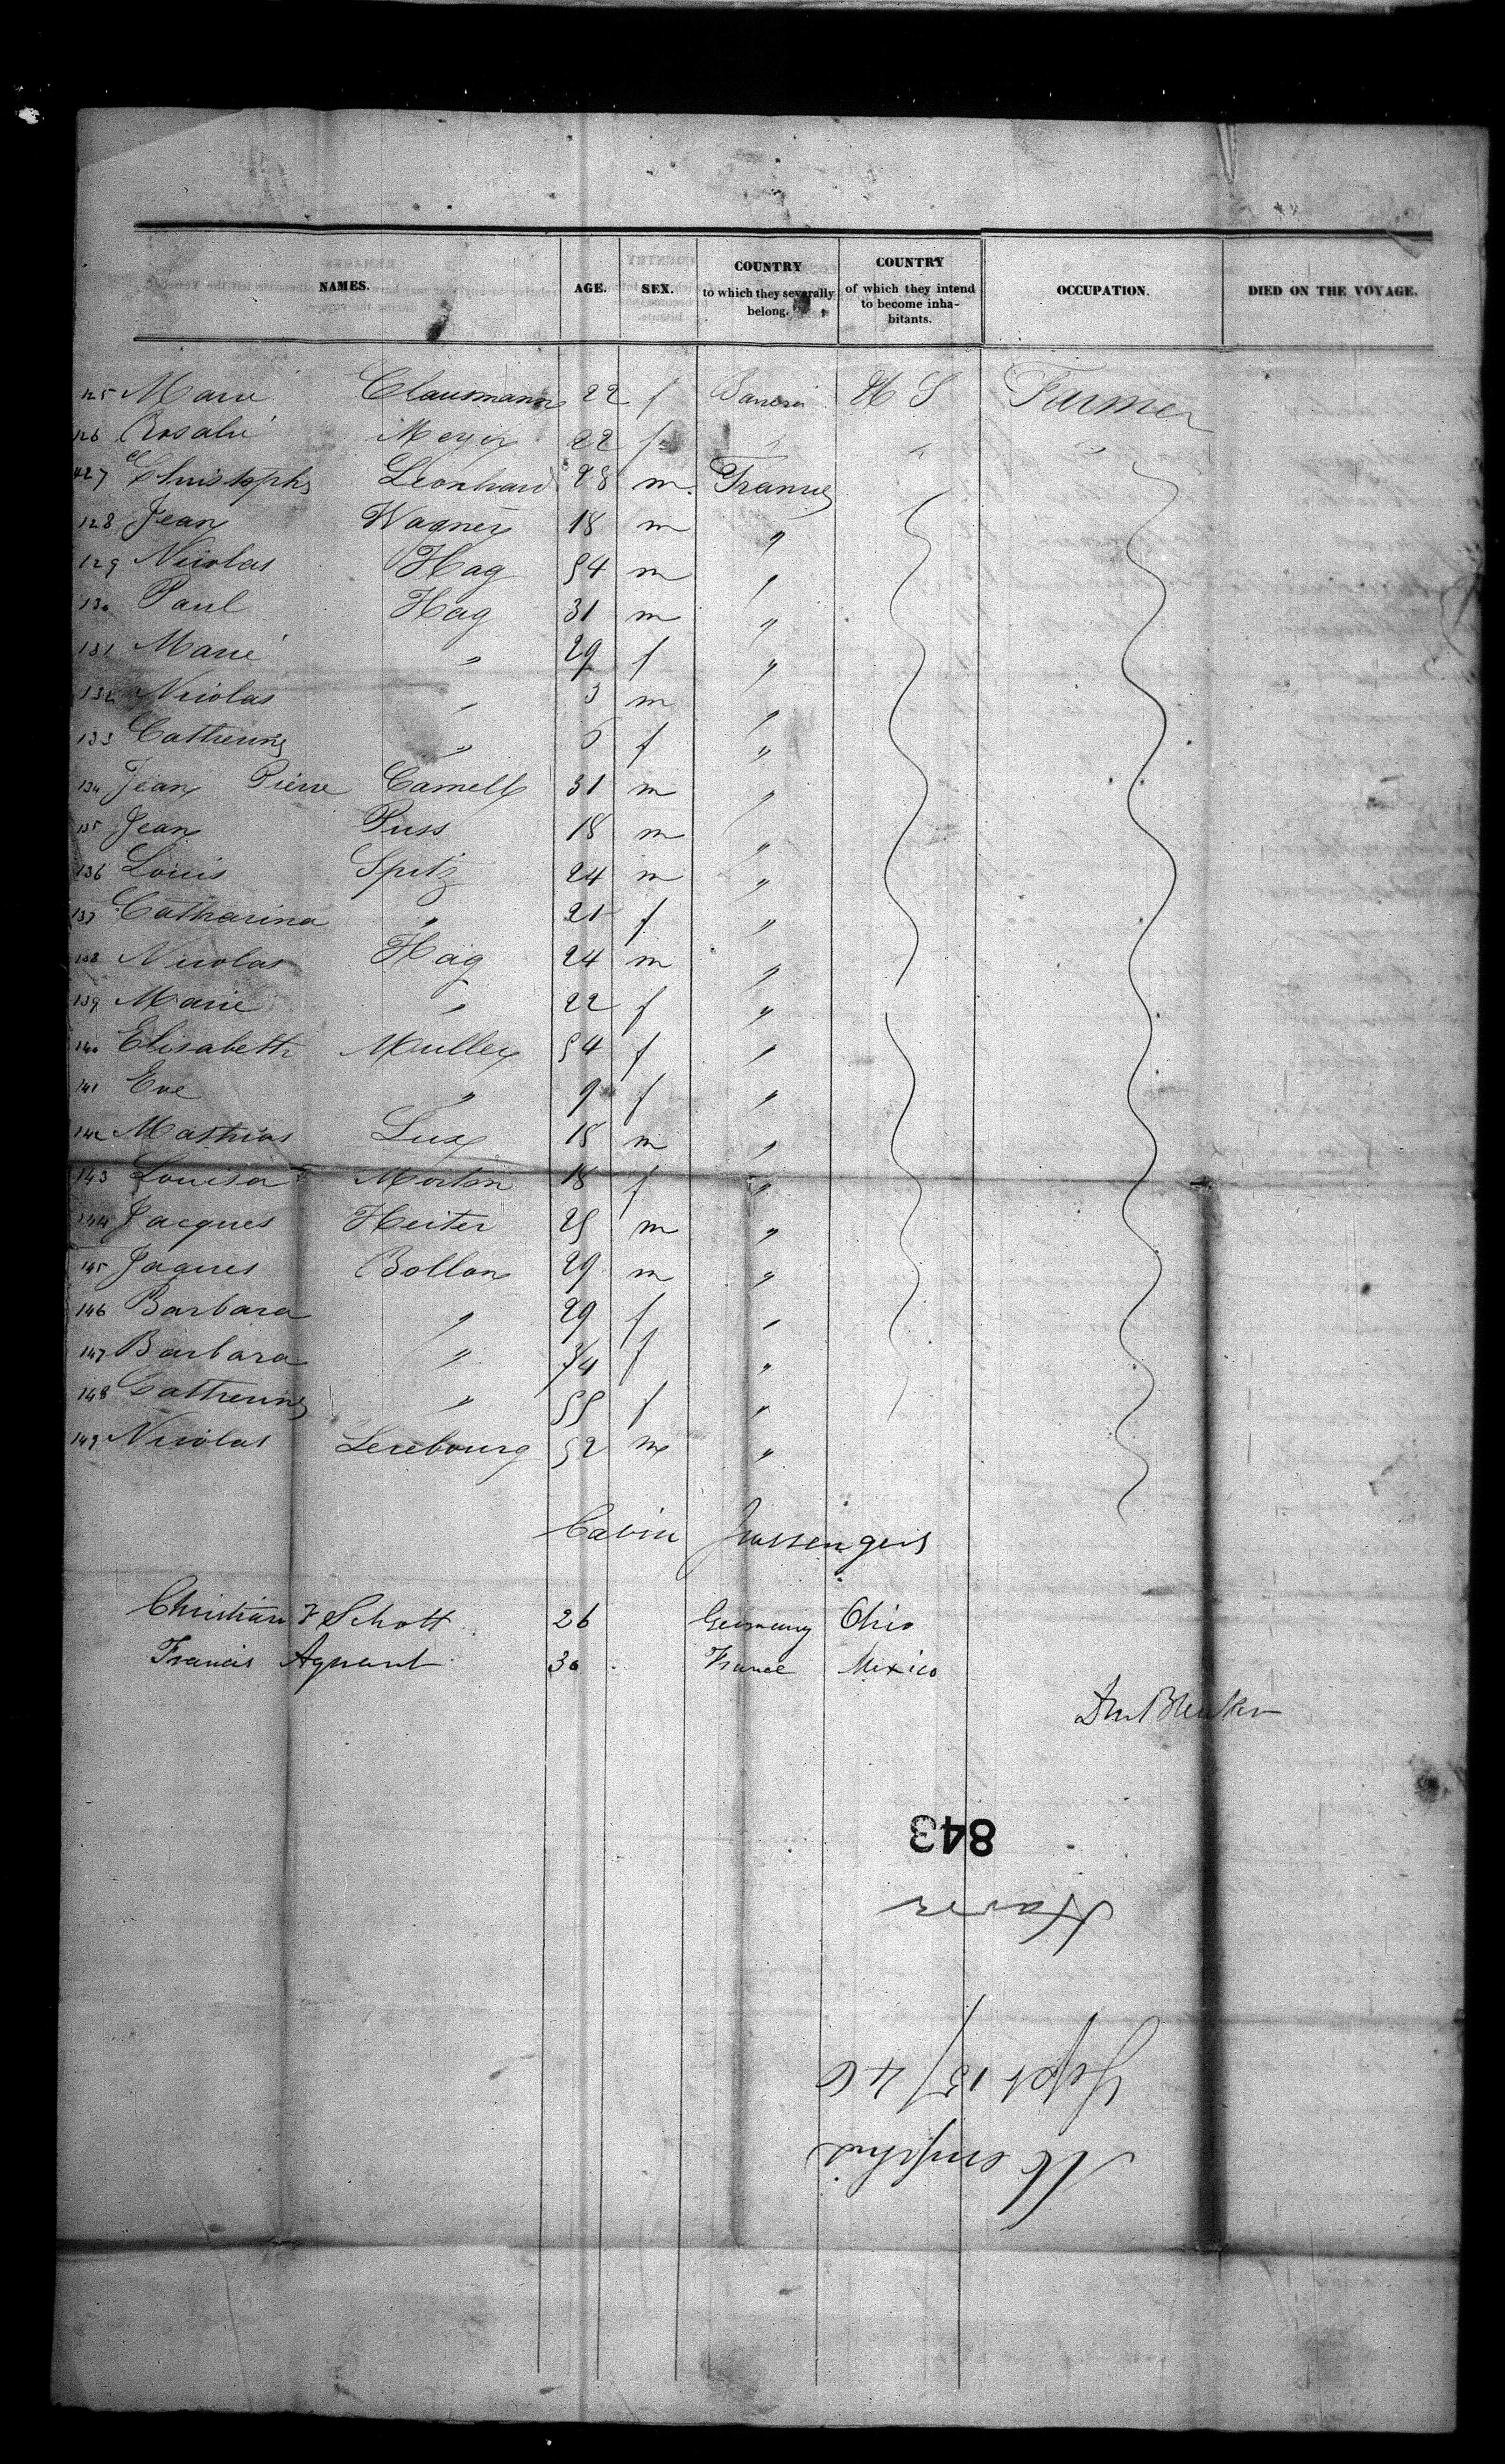 NAMES. AGE. SEX. COUNTRY to which they severally belong. COUNTRY of which they intend to become inhabitants. OCCUPATION. DIED ON THE VOYAGE.
125 Marie Clausmann 22 f U S Farmer
126 Rosalie Meyer 22 f "
127 Christophe Leonhard 28 m. France
128 Jean Wagner 18 m "
129 Nicolas Hag 54 m "
130 Paul Hag 31 m "
131 Marie " 29 f "
132 Nicolas " 3 m "
133 Catherine " 6 f "
134 Jean Pierre Camell 31 m "
135 Jean Puss 18 m "
136 Louis Spitz 24 m "
137 Catharina " 21 f "
138 Nicolas Hag 24 m "
139 Marie " 22 f "
140 Elisabeth Muller 54 f "
141 Eve " 9 f "
142 Mathias Lux 18 m "
143 Louisa Morton 18 f "
144 Jacques Heiter 25 m "
145 Jaques Bollon 29 m "
146 Barbara " 29 f "
147 Barbara " 3/4 f "
148 Catherine " 55 f "
149 Nicolas Lerebourg 52 m "
Cabin passengers
Christian F Schott 26 Germany Ohio
Francis 30 France Mexico
843
Havre
Sept 15/46
Memphis